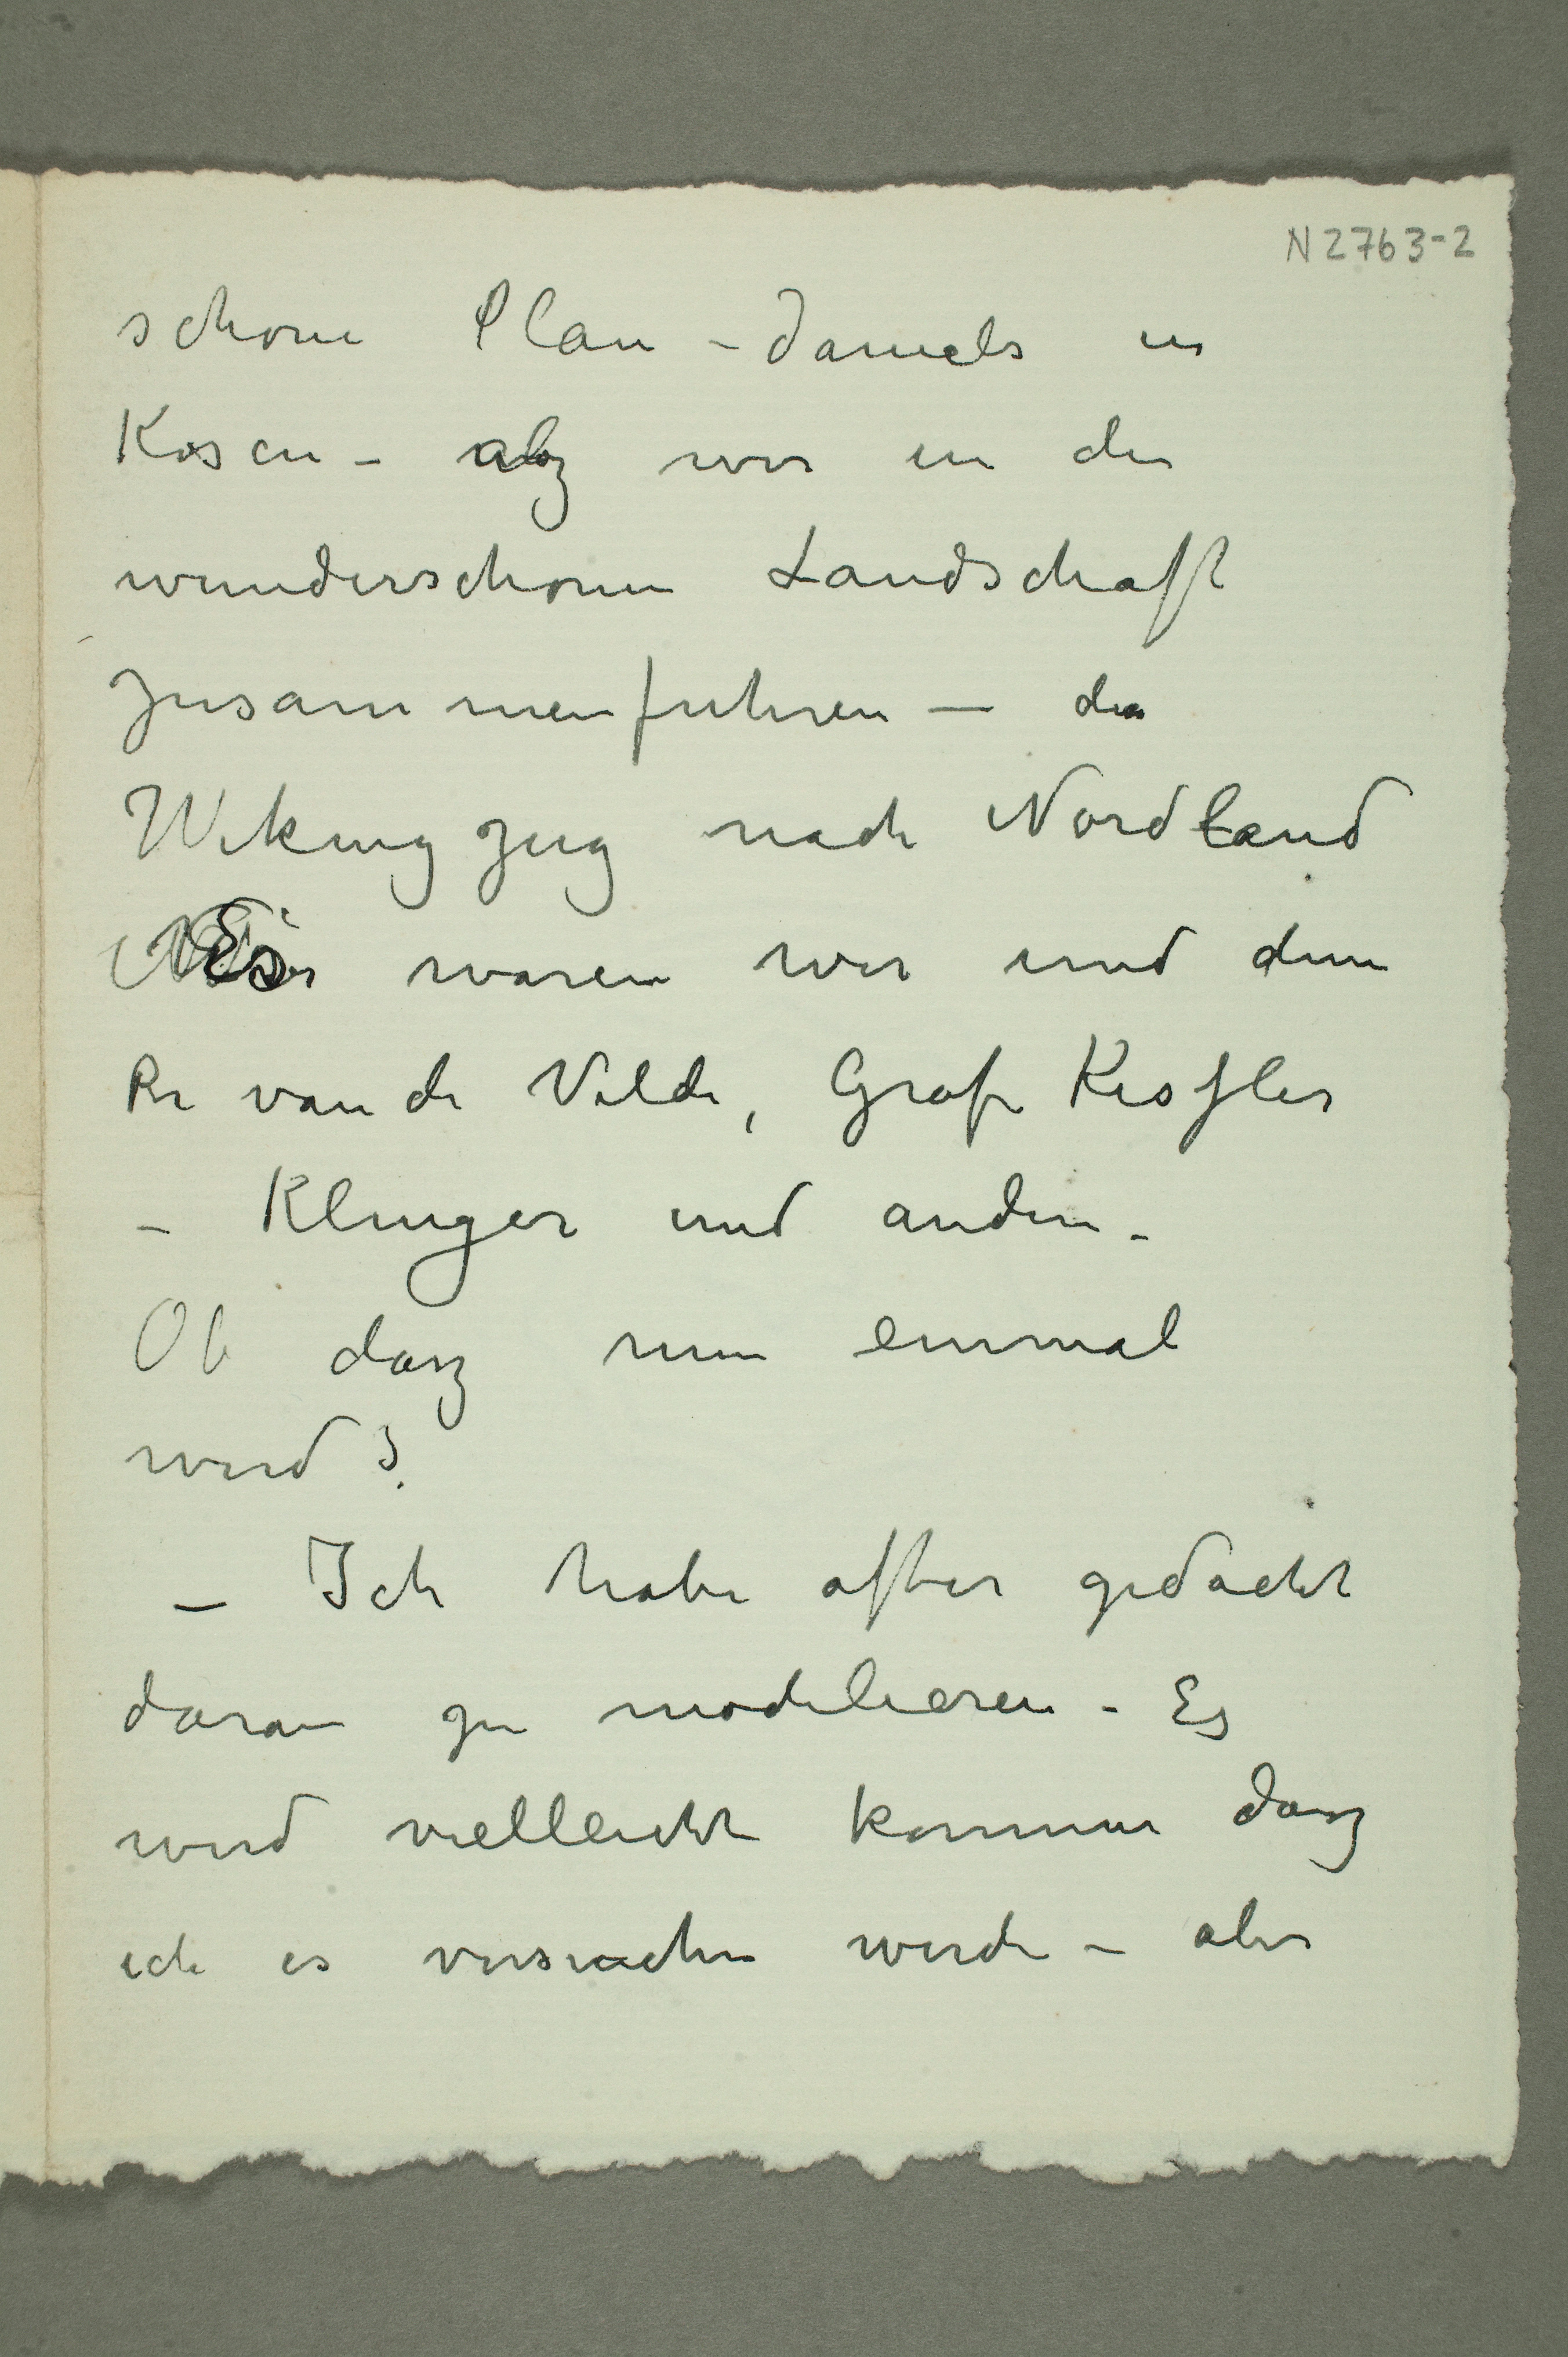 N 2763-2
schone Plan – damals in
Kosen – alz wir in der
wunderschonen Landschaft
zusammenfuhren — der
Wikingzug nach Nordland
Es waren wir und denn
van de Velde, Graf Kessler
– Klinger und andere –
Ob dasz nun einmal
wird?
– Ich habe ofter gedacht
daran zu modelieren – Es
wird vielleicht kommen dasz
ich es versuchen werde – aber